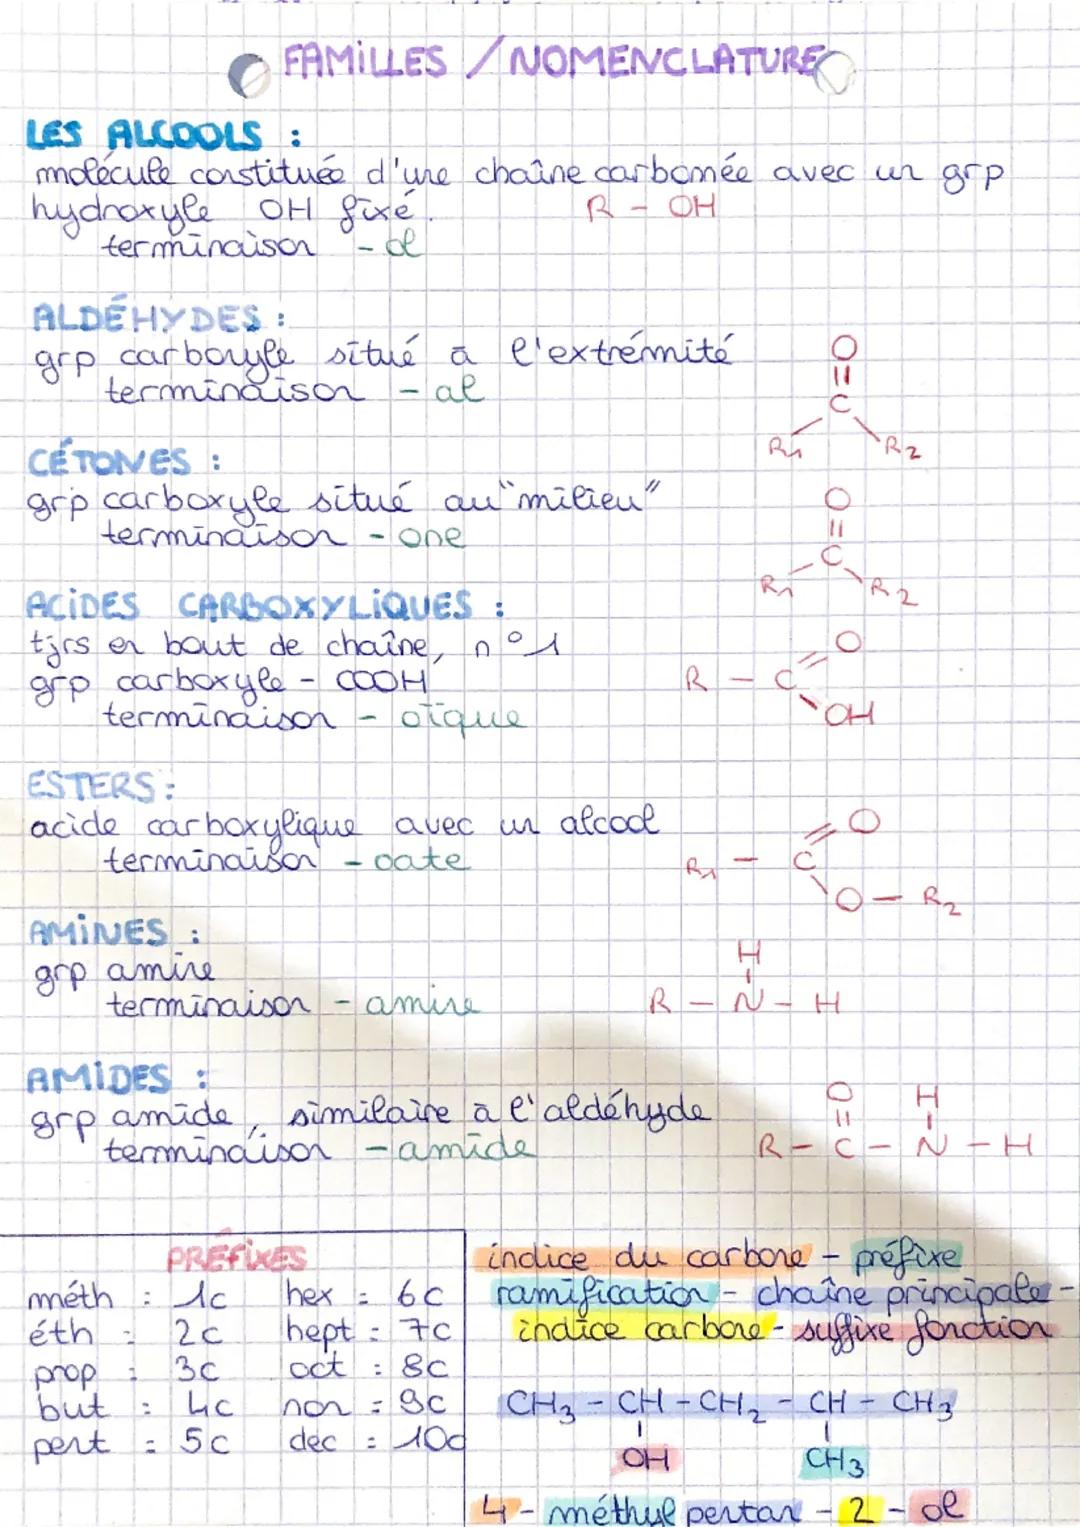 FAMILLES / NOMENCLATURE
LES ALCOOLS :
molécule constituée d'une chaîne carbonée avec un grp
hydroxyle OH fixé. R - OH
terminaison - ol
ALDÉHYDES :
grp carboxyle situé à l'extrémité
terminaison - al
O
||
C
R1 R2
CÉTONES :
grp carboxyle situé au "milieu"
terminaison - one
O
||
C
R1 R2
ACIDES CARBOXYLIQUES :
tjrs en bout de chaîne, n°1
grp carboxyle - COOH
terminaison - oïque
O
R - C
OH
ESTERS :
acide carboxylique avec un alcool
terminaison - oate
O
R1 - C
O - R2
AMINES :
grp amine
terminaison - amine
H
R - N - H
AMIDES :
grp amide, similaire à l'aldéhyde
terminaison - amide
O H
|| |
R - C - N - H
PRÉFIXES
méth : 1c hex : 6c
éth : 2c hept : 7c
prop : 3c oct : 8c
but : 4c non : 9c
pent : 5c dec : 10c
indice du carbone - préfixe
ramification - chaîne principale -
indice carbone - suffixe fonction
CH3 - CH - CH2 - CH - CH3
OH CH3
4 - méthyl pentan - 2 - ol